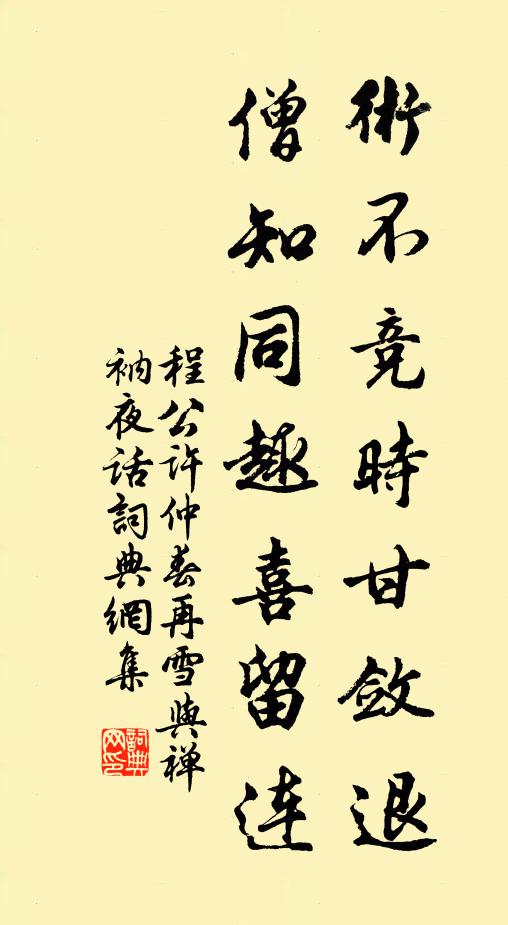 術不竞時甘斂退
僧知同趣喜留連
程公許仲春再雪與禅
衲夜话詞典網集
詞典
网印